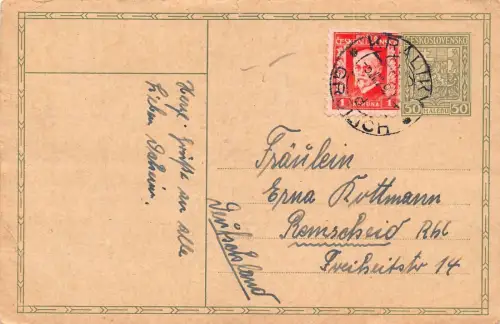 ČESKOSLOVENSKO
50
50
HALÉŘŮ
1
KORUNA
1
KRALIKY
GRULICH
Herzl. Grüße an alle
Lieben Daheim.
Fräulein
Erna Kottmann
Remscheid Rhl
Freiheitstr 14
Deutschland